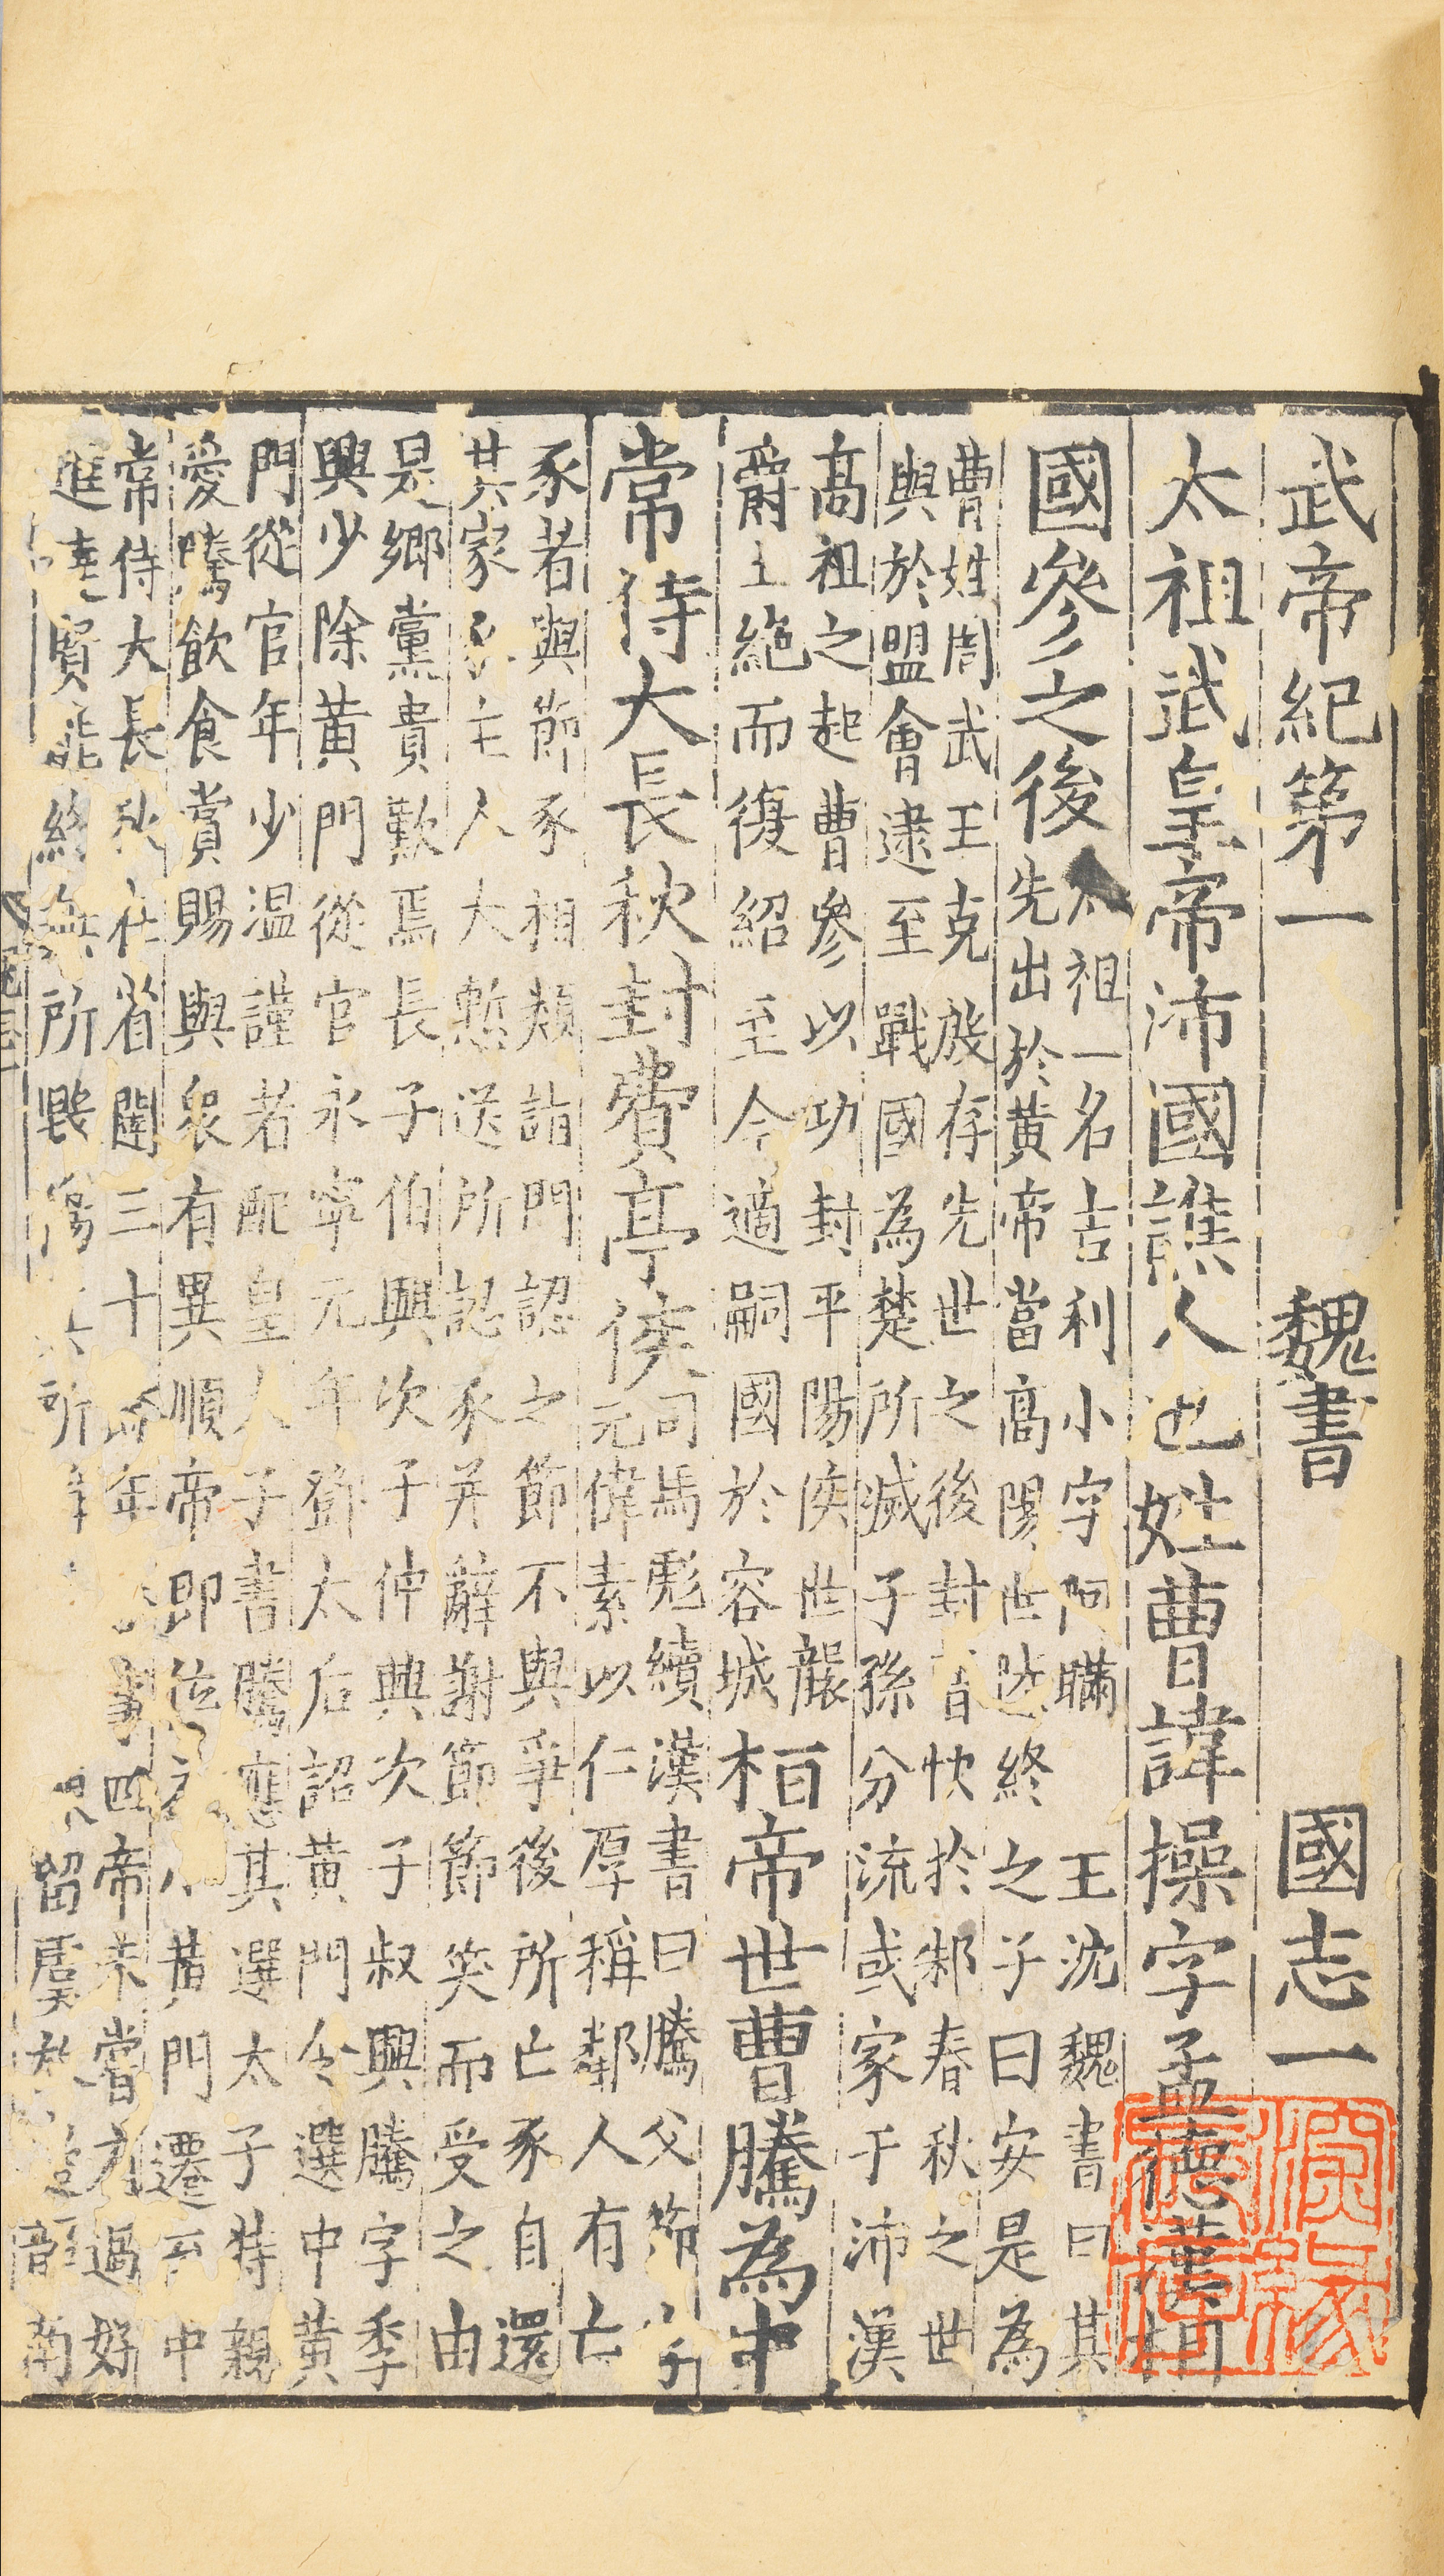 武帝紀第一 魏書 國志一
太祖武皇帝沛國譙人也姓曹諱操字孟德漢相
國參之後
太祖一名吉利小字阿瞞 王沈魏書曰其
先出於黃帝當高陽世陸終之子曰安是為
曹姓周武王克殷存先世之後封曹俠於邾春秋之世
與於盟會逮至戰國為楚所滅子孫分流或家于沛漢
高祖之起曹參以功封平陽侯世襲
爵土絕而復紹至今適嗣國於容城
桓帝世曹騰為中
常侍大長秋封費亭侯
司馬彪續漢書曰騰父節字
元偉素以仁厚稱鄰人有亡
豕者與節豕相類詣門認之節不與爭後所亡豕自還
其家豕主人大慙送所認豕并辭謝節節笑而受之由
是鄉黨貴歎焉長子伯興次子仲興次子叔興騰字季
興少除黃門從官永寧元年鄧太后詔黃門令選中黃
門從官年少温謹者配皇太子書騰應其選太子特親
愛騰飲食賞賜與衆有異順帝即位為小黃門遷至中
常侍大長秋在省闥三十餘年歷事四帝未嘗有過好
進達賢能終無所毀傷其所稱 留虞放邊韶南